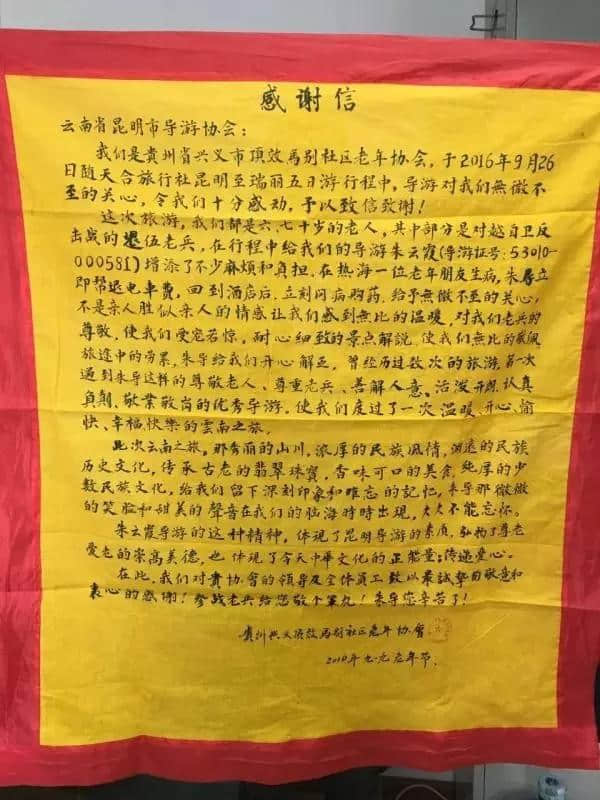 感谢信
云南省昆明市导游协会：
我们是贵州省兴义市頂效馬别社区老年协会，于2016年9月26
日随天合旅行社昆明至瑞丽五日游行程中，导游对我们無微不
至的关心，令我们十分感动，予以致信致谢！
这次旅游，我们都是六、七十岁的老人，其中部分是对越自卫反
击战的退伍老兵，在行程中给我们的导游朱云霞(导游证号：53010-
000581)增添了不少麻烦和負担。在热海一位老年朋友生病，朱导立
即帮退电車费，回到酒店后，立刻问病购药，给予無微不至的关心，
不是亲人胜似亲人的情感让我们感到無比的温暖，对我们老兵的
尊敬，使我们受宠若惊，耐心细致的景点解説，使我们無比的敬佩
旅途中的劳累，朱导给我们开心解丑，曾经历过数次的旅游，第一次
遇到朱导这样的尊敬老人、尊重老兵、善解人意、活泼开朗、认真
負責、敬業敬岗的优秀导游，使我们度过了一次温暖、开心、愉
快、幸福、快樂的雲南之旅。
此次云南之旅，那秀丽的山川，濃厚的民族風情，悠遠的民族
历史文化，传承古老的翡翠珠寳，香味可口的美食，純厚的少
数民族文化，给我们留下深刻印象和难忘的記忆，朱导那微微
的笑脸和甜美的聲音在我们的脑海時時出現，久久不能忘怀。
朱云霞导游的这种精神，体現了昆明导游的素质，弘物了尊老
愛老的崇高美德，也体現了今天中華文化的正能量；传递爱心。
在此，我们对贵协會的领导及全体員工致以最誠挚的敬意和
衷心的感谢！参战老兵给您敬个軍礼！朱导您辛苦了！
貴州兴义頂效馬别社区老年协會
2016年九.九老年节.